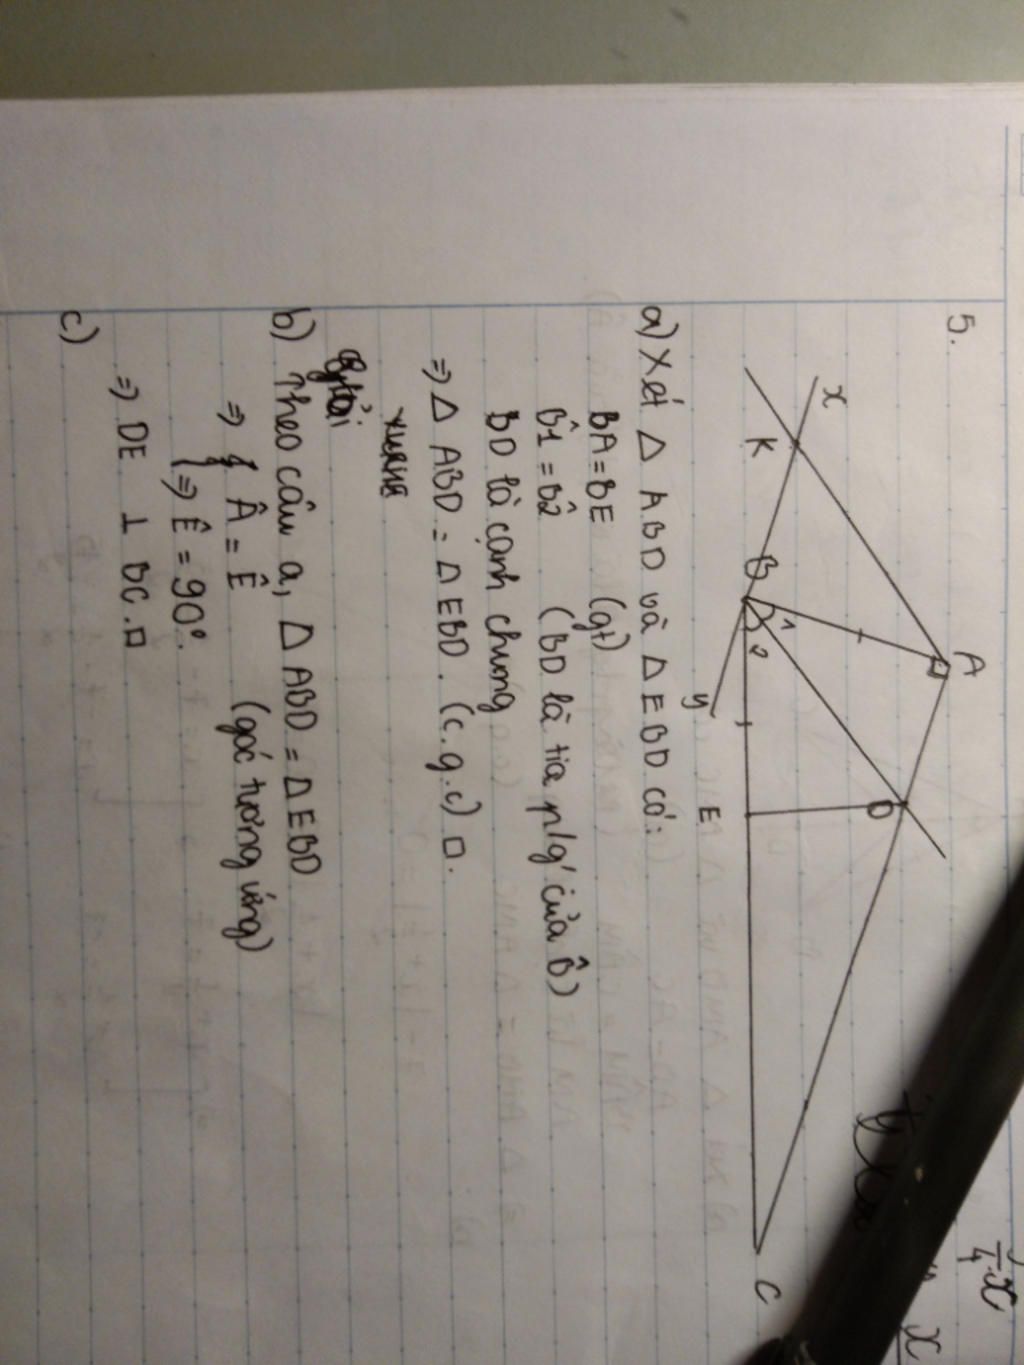 5.
x
K
A
B
1
2
y
D
E
C
a) Xét Δ ABD và Δ EBD có:
BA = BE (gt)
B̂1 = B̂2 (BD là tia p/g' của B̂)
BD là cạnh chung
⇒ Δ ABD = Δ EBD. (c.g.c) □.
b) Theo câu a, Δ ABD = Δ EBD
⇒ Â = Ê (góc tương ứng)
⇒ Ê = 90°.
⇒ DE ⊥ BC. □
c)